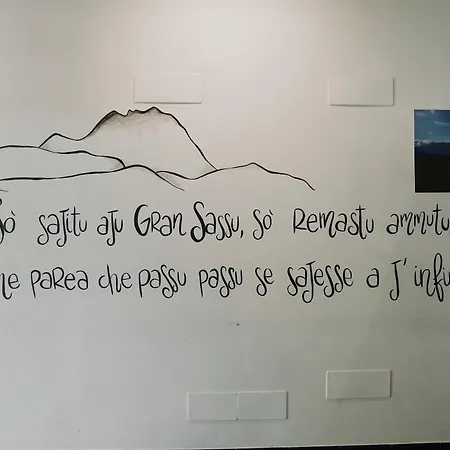 Sò sajitu aju Gran Sassu, so' remastu ammutu
me parea che passu passu se sajesse a j'infi